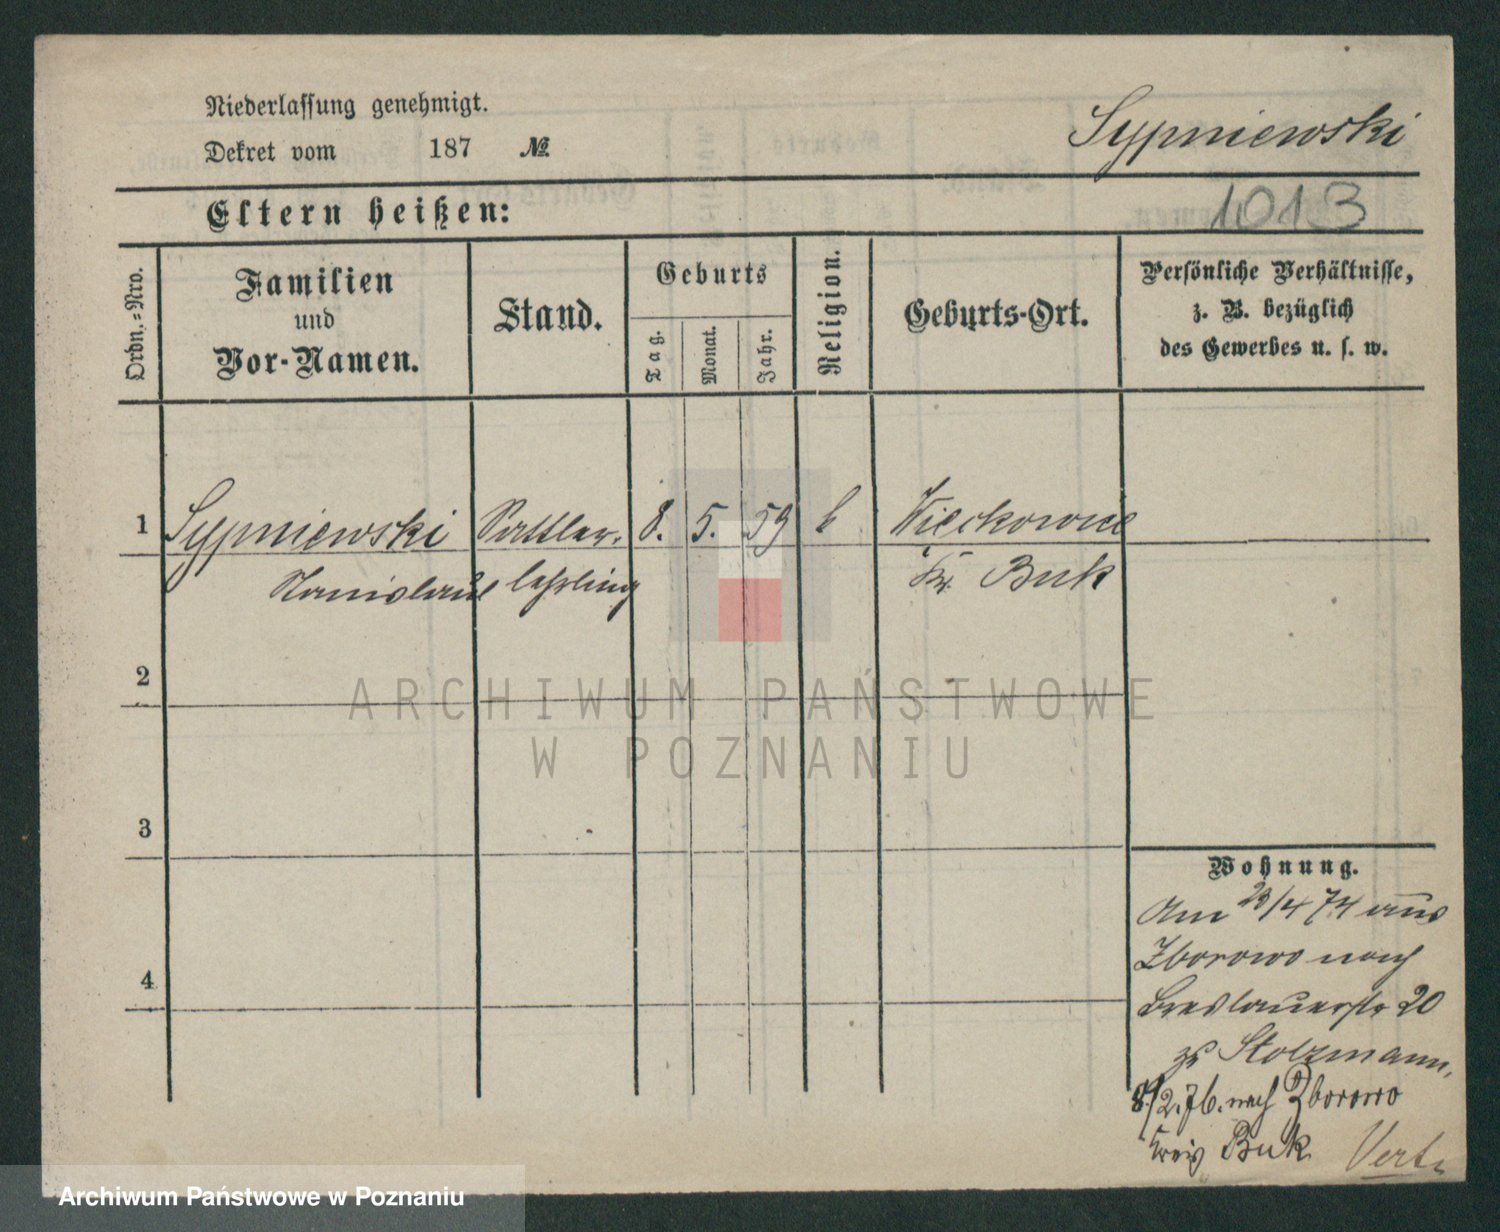 Niederlassung genehmigt.
Dekret vom 187 №
Sypniewski
1013
Eltern heißen:
Ordn.-Nro.
Familien
und
Vor-Namen.
Stand.
Geburts
Tag.
Monat.
Jahr.
Religion.
Geburts-Ort.
Persönliche Verhältnisse,
z. B. bezüglich
des Gewerbes u. s. w.
1 Sypniewski Sattler- 8. 5. 59 Wieckowice
Stanislaus lehrling Kr. Buk
2
3
4
Wohnung.
Am 23/4 74 aus
Zborowo nach
Breslauerstr 20
zu Stolzmann.
8/2.76. nach Zborowo
Kreis Buk Vert.
ARCHIWUM PAŃSTWOWE
W POZNANIU
Archiwum Państwowe w Poznaniu